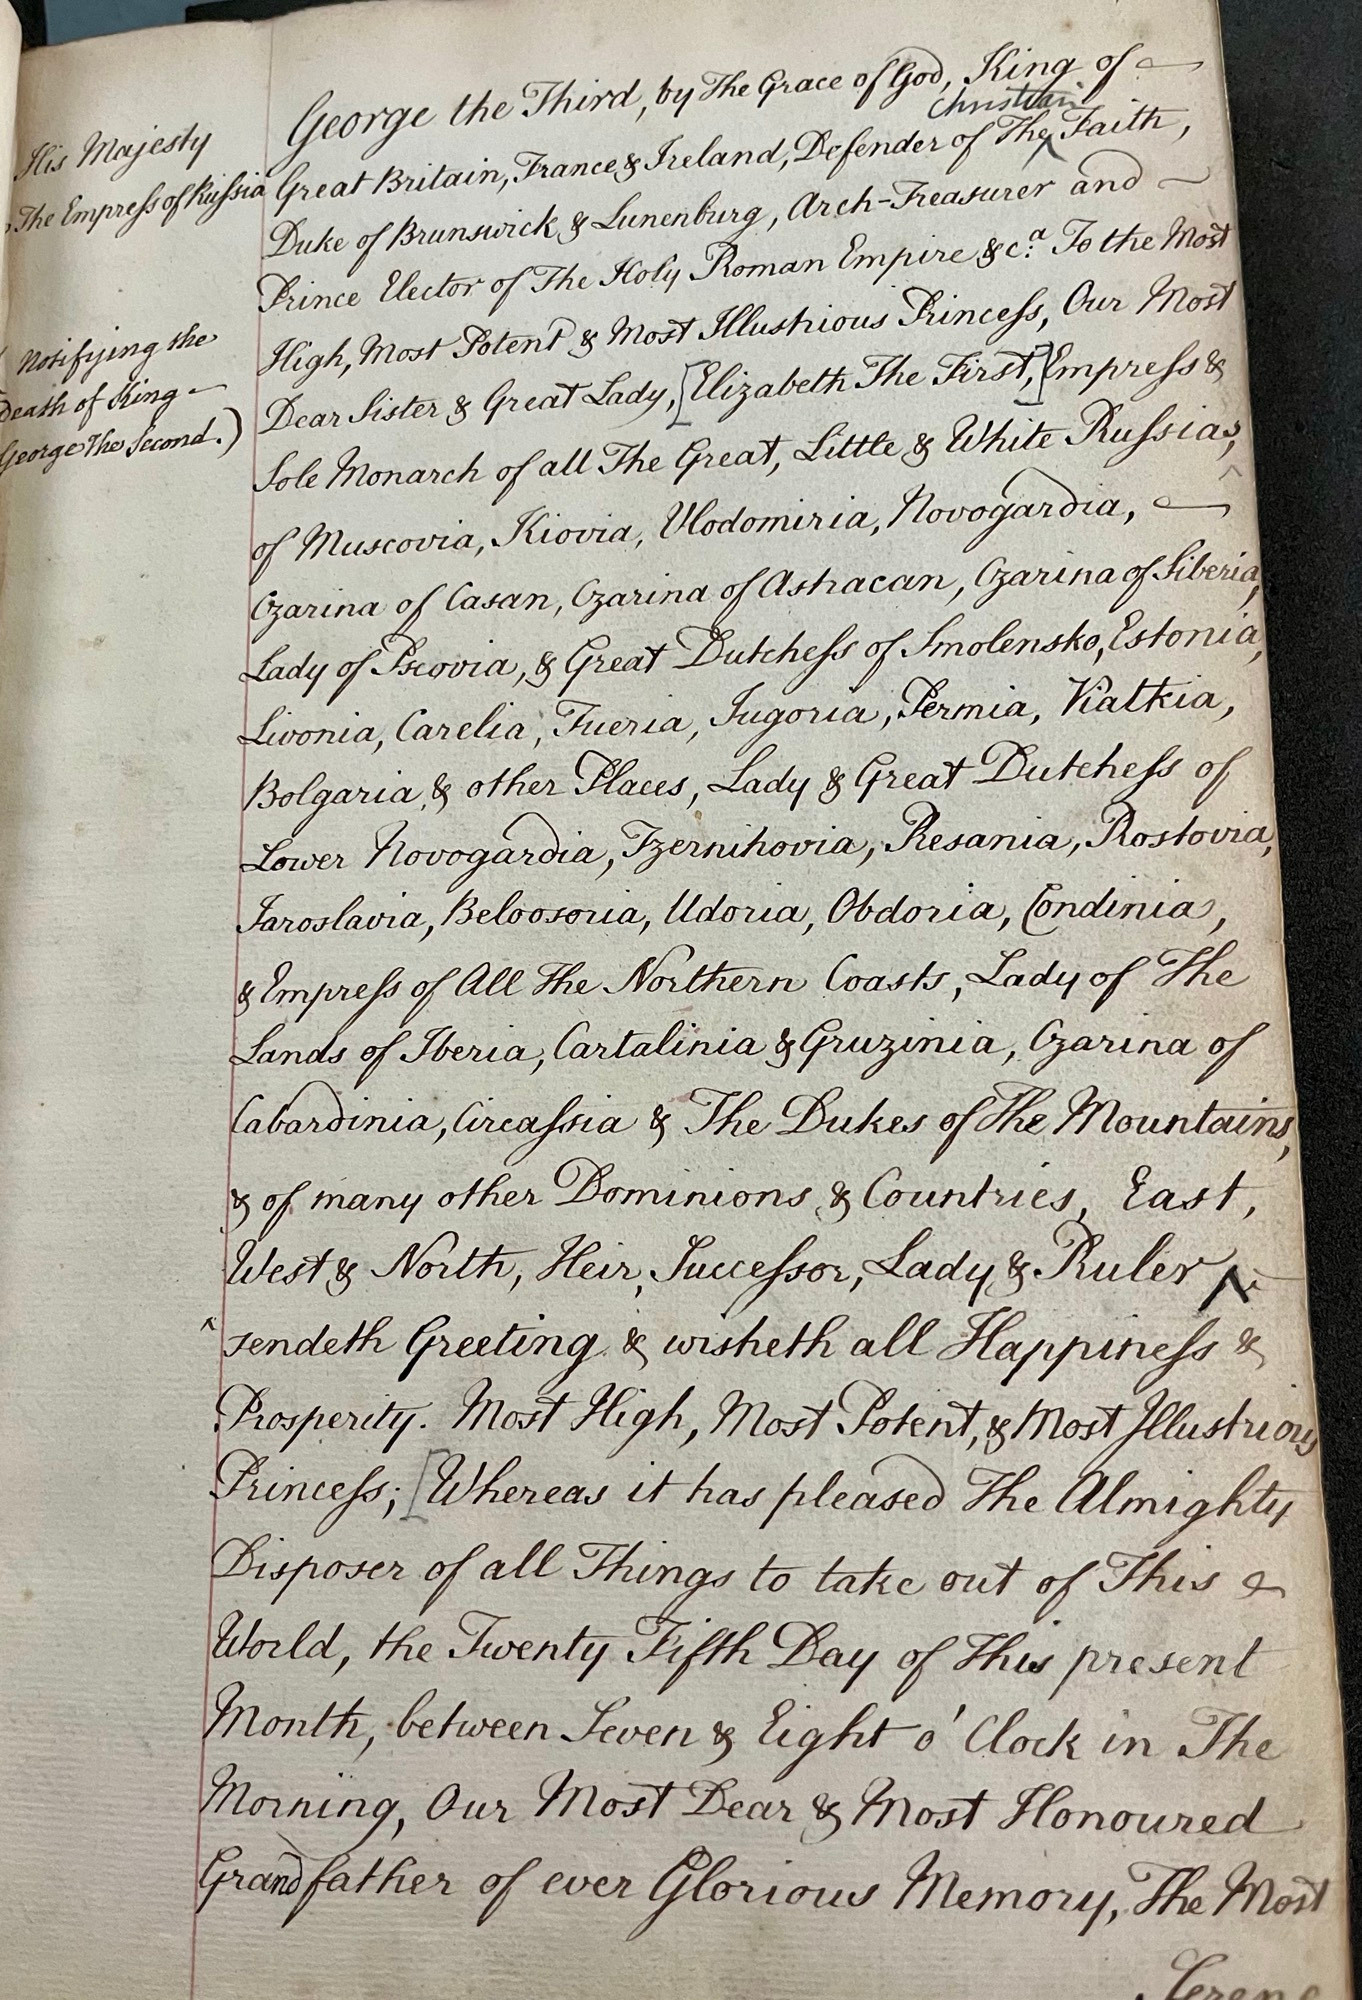 His Majesty
The Empress of Russia
Notifying the
Death of King
George The Second.)
George the Third, by The Grace of God, King of
Christian
Great Britain, France & Ireland, Defender of The ^ Faith,
Duke of Brunswick & Lunenburg, Arch-Treasurer and
Prince Elector of The Holy Roman Empire &c.a To the Most
High, Most Potent & Most Illustrious Princess, Our Most
Dear Sister & Great Lady, [Elizabeth The First,] Empress &
Sole Monarch of all The Great, Little & White Russias,
of Muscovia, Kiovia, Vlodomiria, Novogardia,
Czarina of Casan, Czarina of Astracan, Czarina of Siberia,
Lady of Pscovia, & Great Dutchess of Smolensko, Estonia,
Livonia, Carelia, Tueria, Jugoria, Permia, Viatkia,
Bolgaria & other Places, Lady & Great Dutchess of
Lower Novogardia, Tzernihovia, Resania, Rostovia,
Jaroslavia, Beloosoria, Udoria, Obdoria, Condinia,
& Empress of All The Northern Coasts, Lady of The
Lands of Iberia, Cartalinia & Gruzinia, Czarina of
Cabardinia, Circassia & The Dukes of The Mountains,
& of many other Dominions & Countries, East,
West & North, Heir, Successor, Lady & Ruler
sendeth Greeting & wisheth all Happiness &
Prosperity. Most High, Most Potent, & Most Illustrious
Princess; [Whereas it has pleased The Almighty
Disposer of all Things to take out of This
World, the Twenty Fifth Day of This present
Month, between Seven & Eight o' Clock in The
Morning, Our Most Dear & Most Honoured
Grandfather of ever Glorious Memory, The Most
Serene